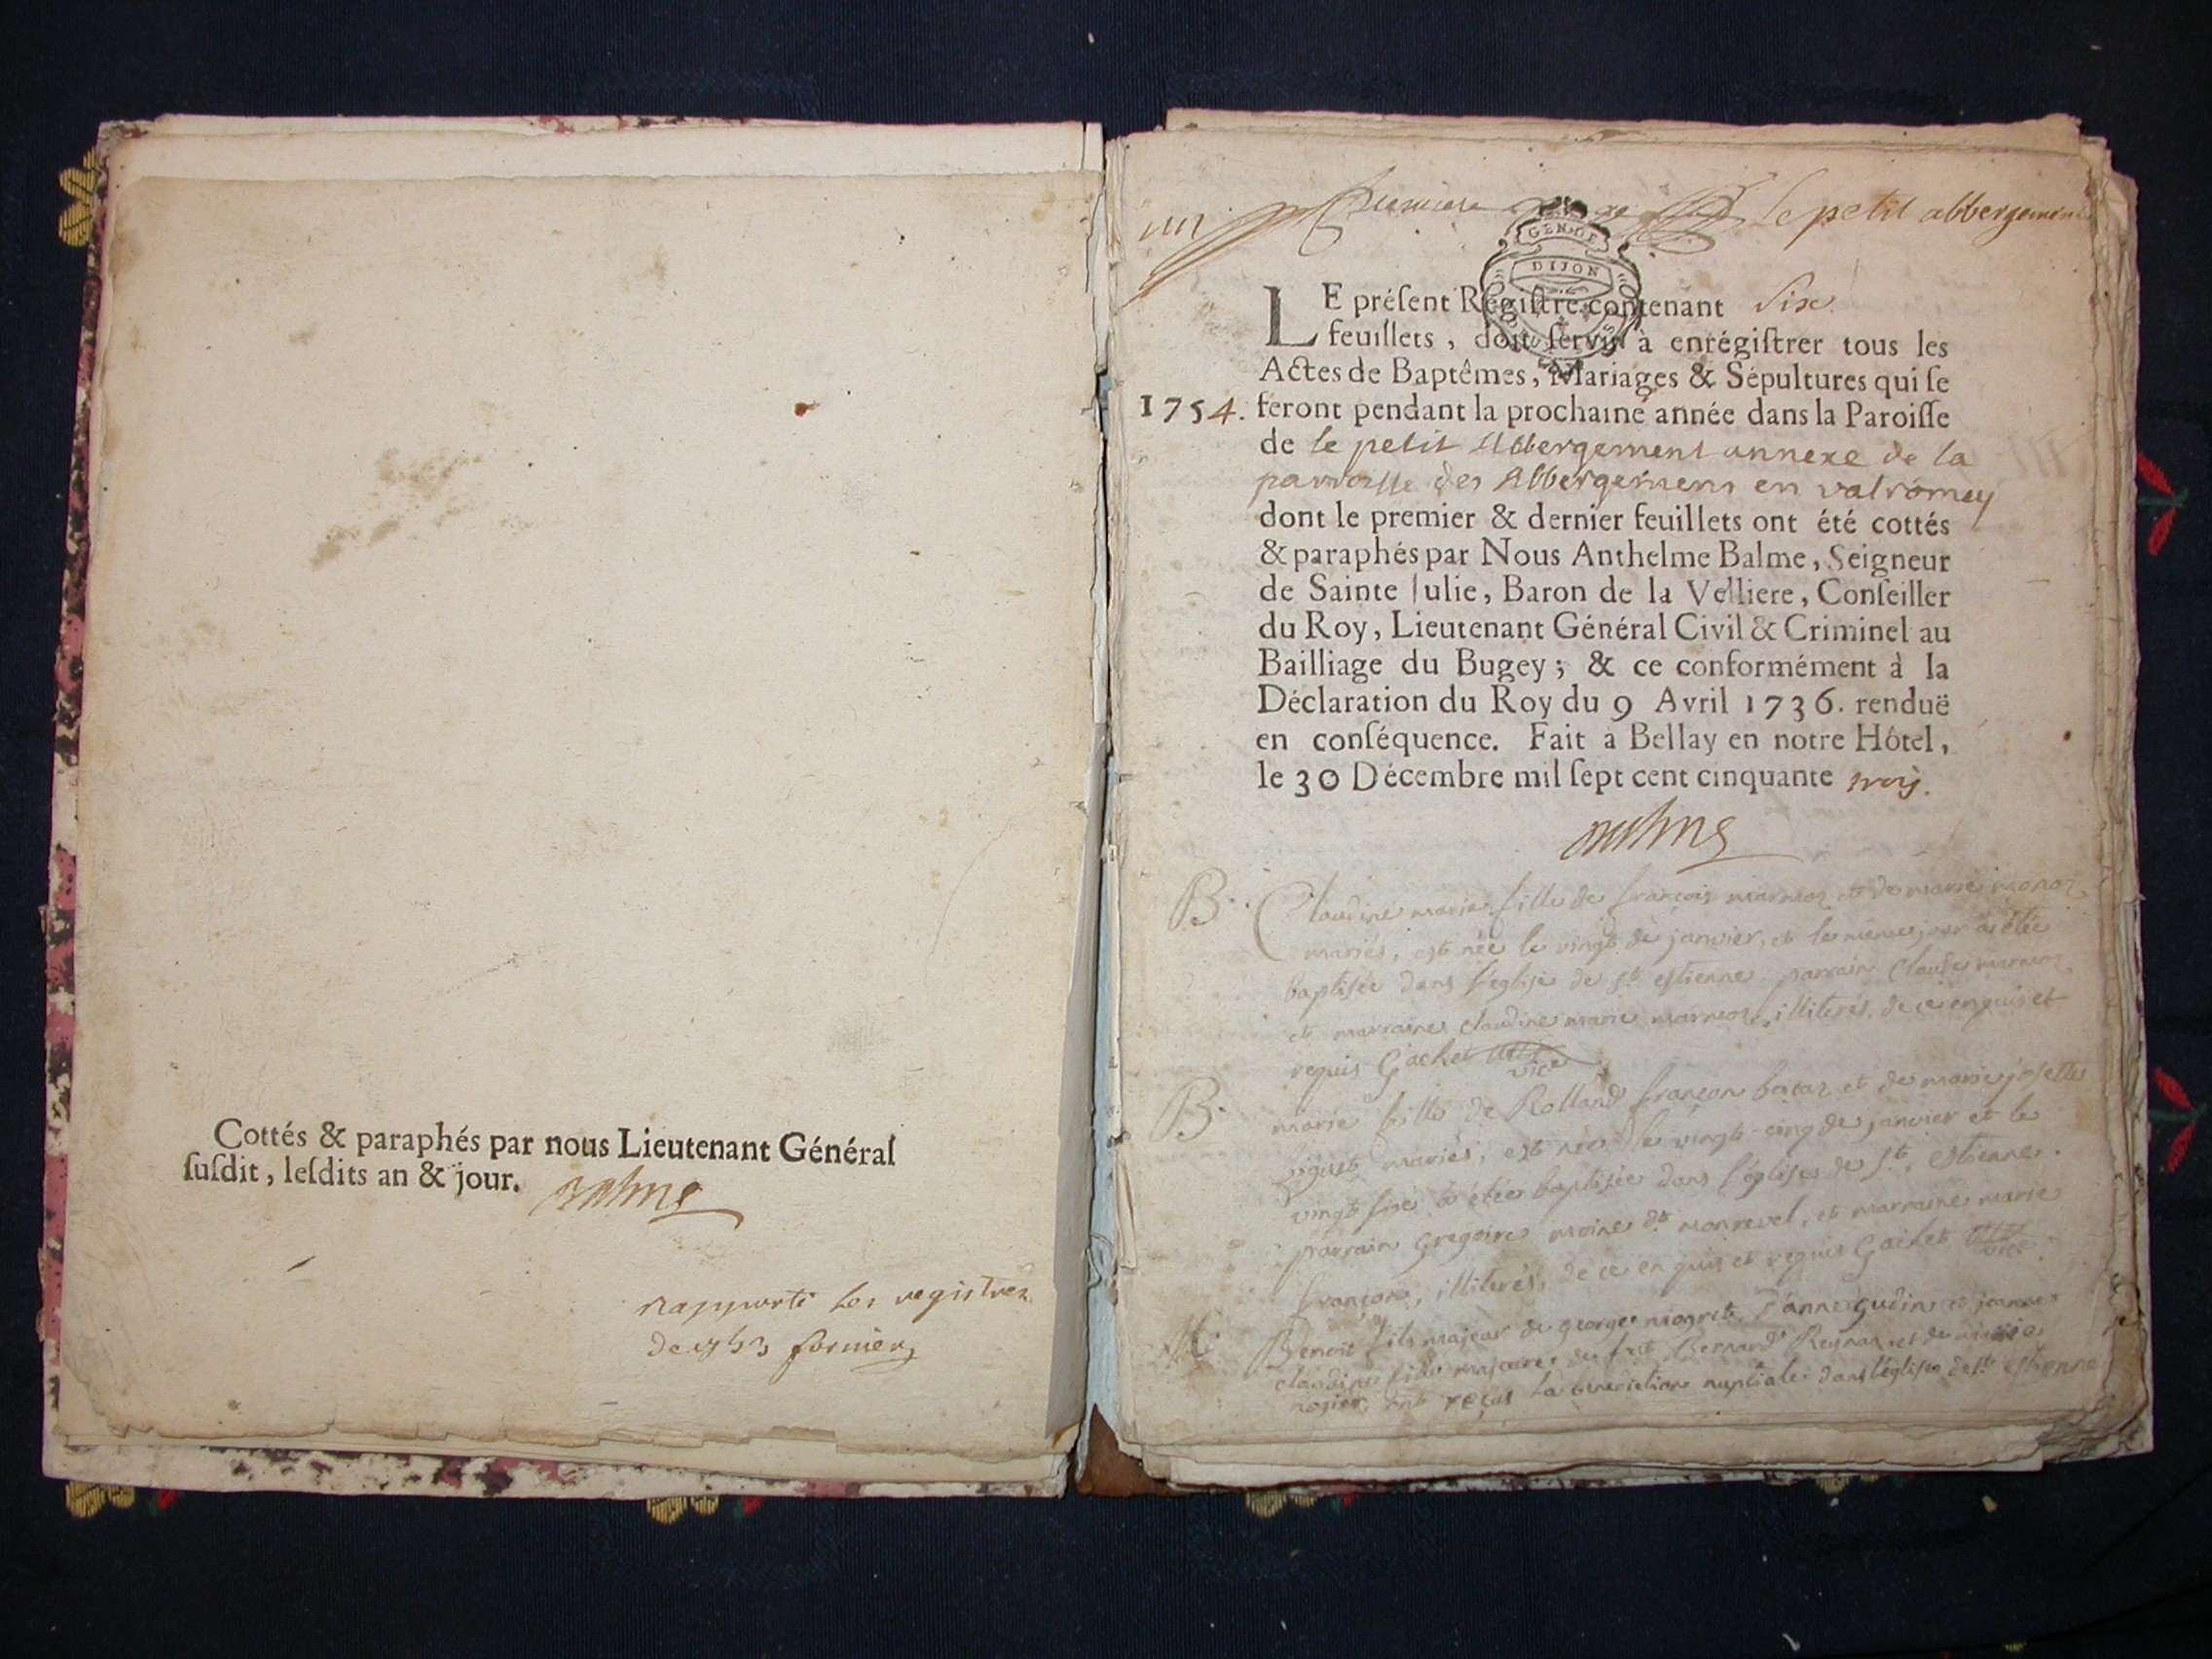 Cottés & paraphés par nous Lieutenant Général
ſuſdit, leſdits an & jour. Balme
Rapporté les registres
de 1753 
un Premiere Le petit abbergement
GEN. DE
DIJON
LE préſent Regiſtre contenant Six
feuillets, doit ſervir à enrégiſtrer tous les
Actes de Baptêmes, Mariages & Sépultures qui ſe
1754. feront pendant la prochaine année dans la Paroiſſe
de le petit Abbergement annexe de la
parroisse des Abbergemens en valromey
dont le premier & dernier feuillets ont été cottés
& paraphés par Nous Anthelme Balme, Seigneur
de Sainte Julie, Baron de la Velliere, Conſeiller
du Roy, Lieutenant Général Civil & Criminel au
Bailliage du Bugey; & ce conformément à la
Déclaration du Roy du 9 Avril 1736. renduë
en conſéquence. Fait à Bellay en notre Hôtel,
le 30 Décembre mil ſept cent cinquante trois.
Balme
B. Claudine marie fille de françois et de marie
mariés, est née le vingt de janvier, et le même jour a étée
baptisée dans l'église de st. estienne parrain Claude
et marraine claudine marie illiterés, de ce enquis et
requis Gachet vice
B. marie fille de Rolland françon et de marie josette
mariés, est née le vingt-cinq de janvier et le
vingt six a étée baptisée dans l'église de st. estienne.
parrain gregoire moine dt. monrevel, et marraine marie
françon, illiterés, de ce enquis et requis Gachet vice
M. Benoit fils majeur de george et jeanne
claudine fille majeure de feu Bernard et de marie
ont reçus la benediction nuptiale dans l'église de st. estienne